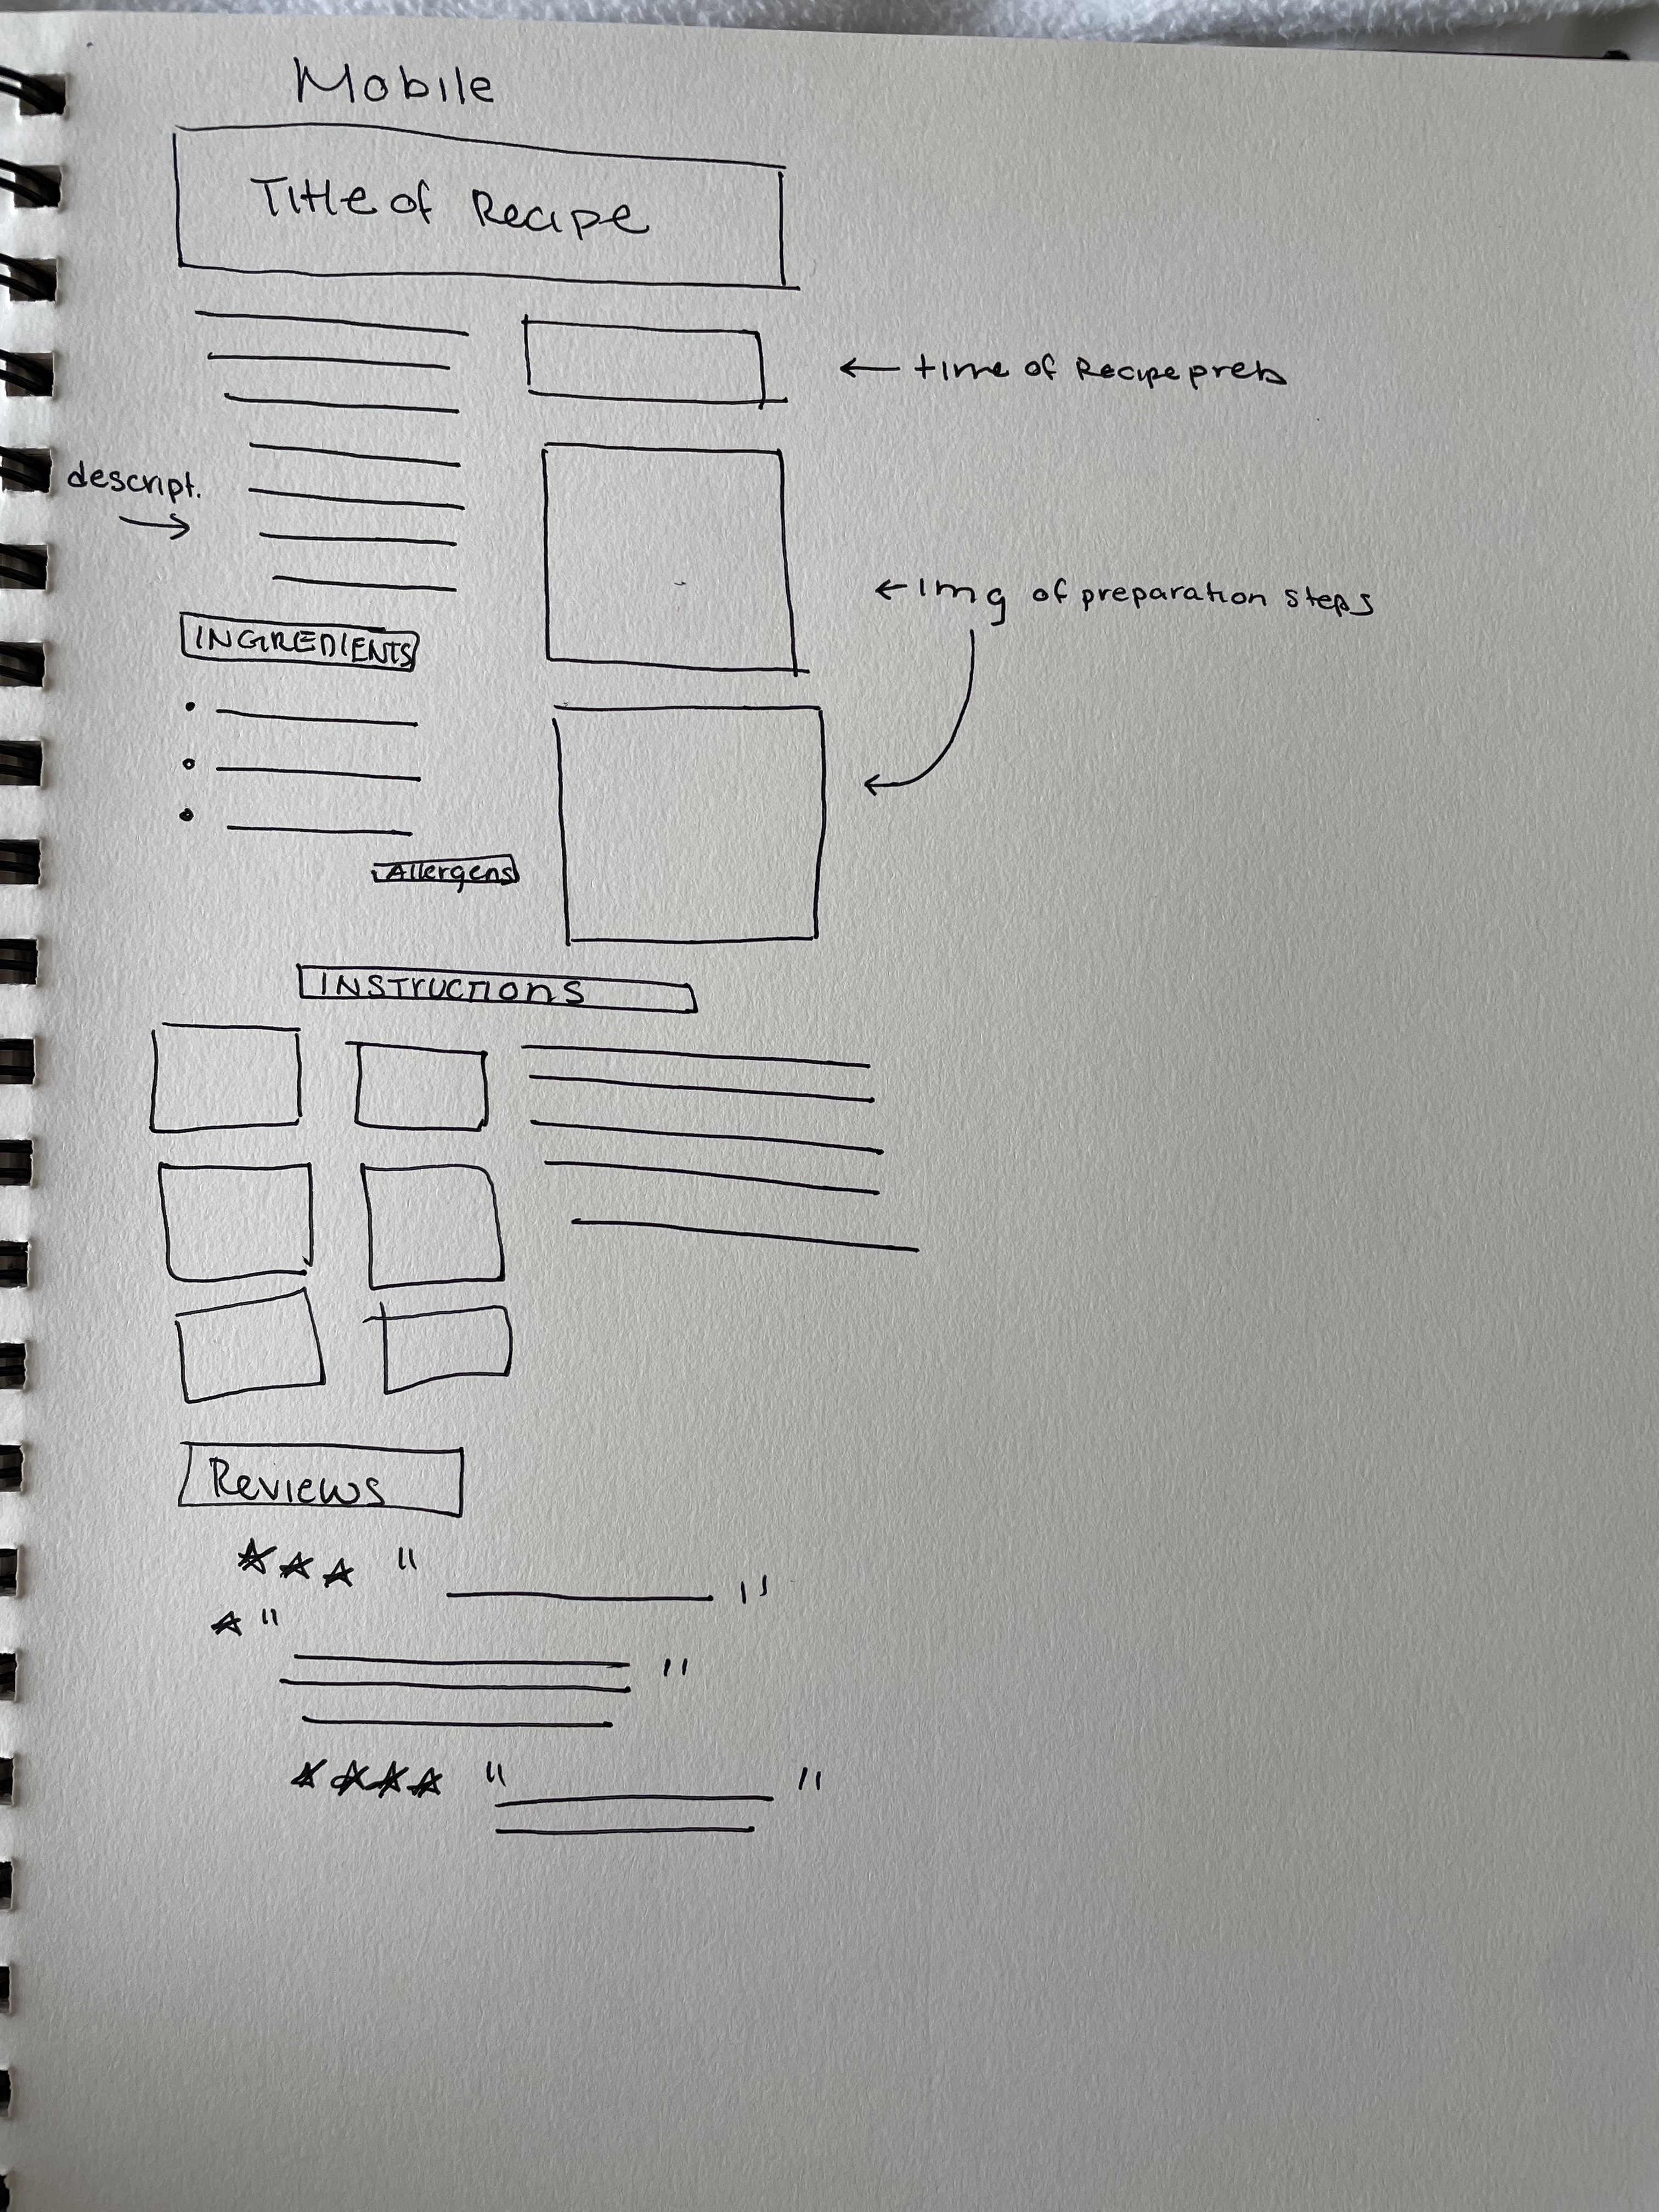 Mobile
Title of Recipe
← time of Recipe prep
descript.
→
← Img of preparation steps
INGREDIENTS
Allergens
INSTRUCTIONS
Reviews
★★★ " "
★ " "
★★★★ " "